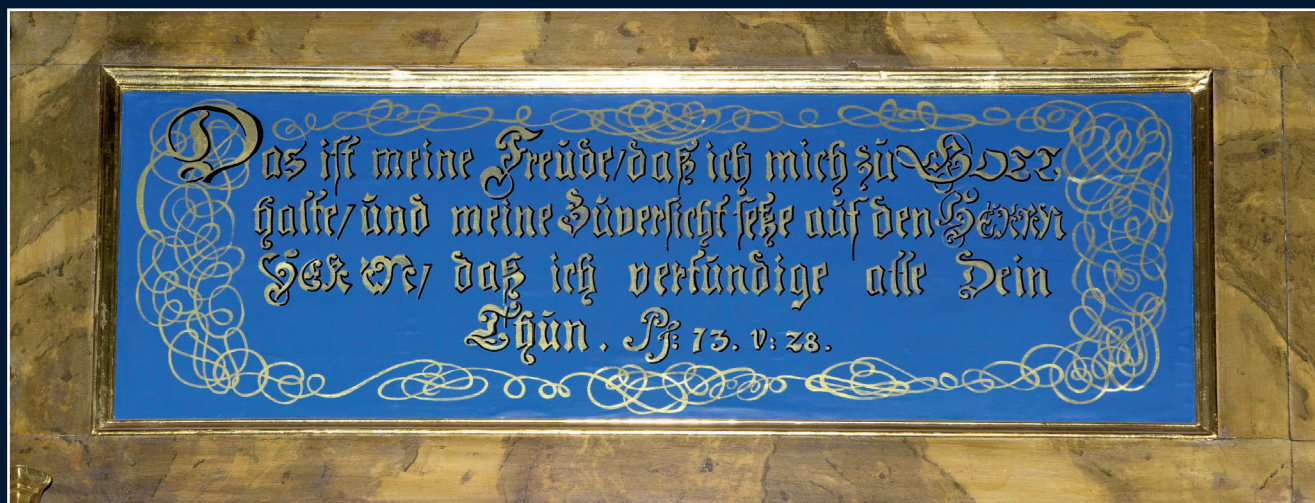 Das ist meine Freude/daß ich mich zu GOTT
halte/und meine Zuversicht setze auf den HERRN
HERRN/ daß ich verkündige alle Dein
Thun. Ps: 73. v: 28.